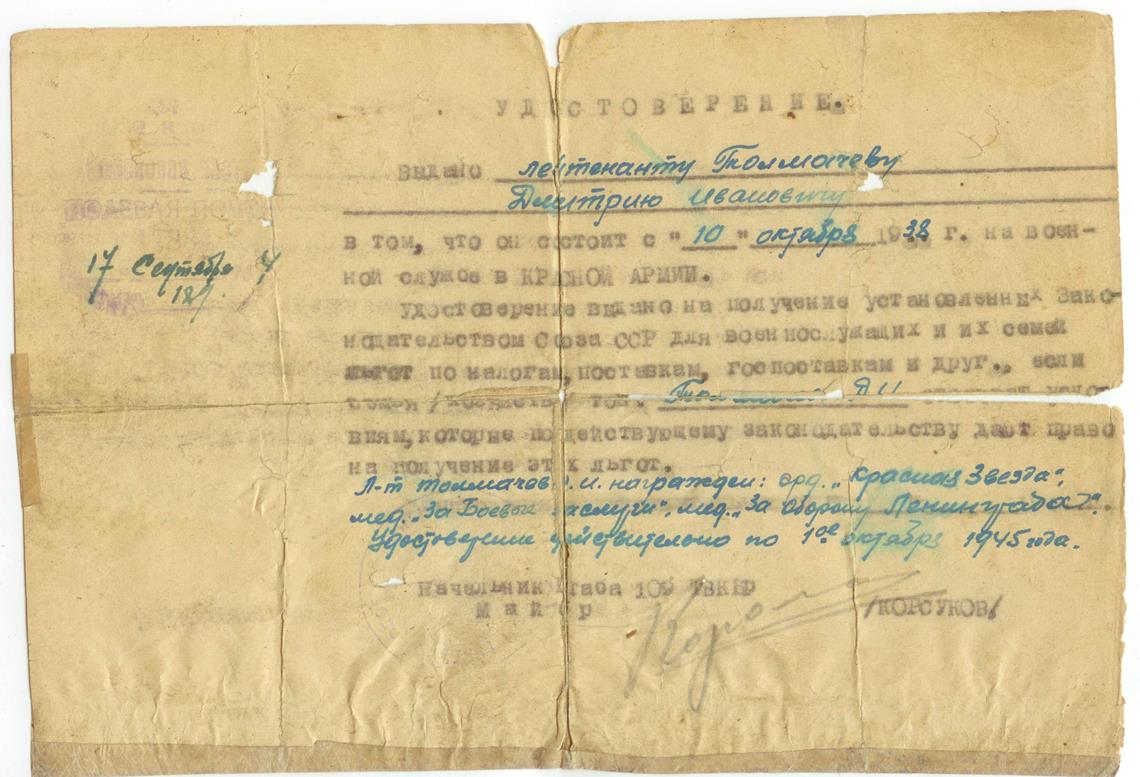 УДОСТОВЕРЕНИЕ.
Выдано лейтенанту Толмачеву
Дмитрию Ивановичу
в том, что он состоит с "10" октября 1938 г. на воен-
ной службе в КРАСНОЙ АРМИИ.
Удостоверение выдано на получение установленных Зако-
нодательством Союза ССР для военнослужащих и их семей
льгот по налогам, поставкам, госпоставкам и друг., если
семья
виям, которые по действующему законодательству дают право
на получение этих льгот.
Л-т Толмачев .И. награжден: орд. „Красная Звезда",
мед. „За Боевые заслуги", мед. „За оборону Ленинграда".
Удостоверение действительно по 1ое октября 1945 года.
17 Сентября 4
Начальник штаба 109
Майор /КОРСУКОВ/